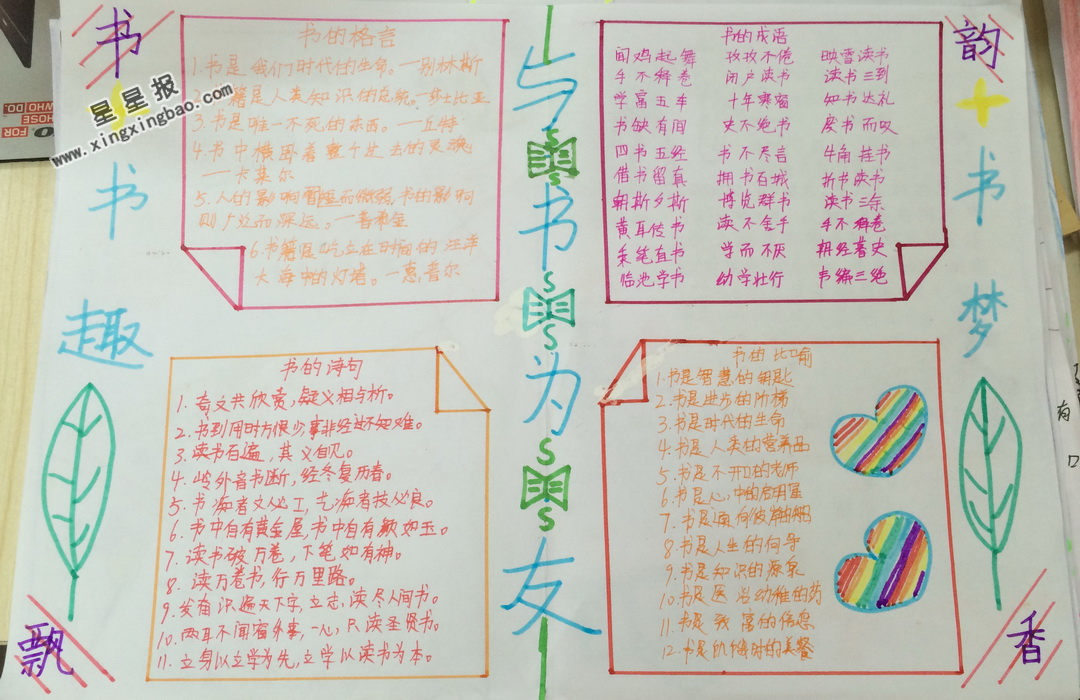 书的格言
1.书是我们时代的生命。—别林斯
籍是人类知识的总统。—莎士比亚
3.书是唯一不死的东西。—丘特
4.书中横卧着整个过去的灵魂
—卡莱尔
5.人的影响 而微弱,书的影响
则广泛而深远。—普希金
6.书籍是屹立在时间的汪洋
大海中的灯塔。—惠普尔
书的成语
闻鸡起舞 孜孜不倦 映雪读书
手不释卷 闭户读书 读书三到
学富五车 十年寒窗 知书达礼
书缺有间 史不绝书 废书而叹
四书五经 书不尽言 牛角挂书
借书留真 拥书百城 折节读书
朝斯夕斯 博览群书 读书三余
黄耳传书 读不舍手 手不释卷
秉笔直书 学而不厌 耕经著史
临池学书 幼学壮行 韦编三绝
书的诗句
1.奇文共欣赏,疑义相与析。
2.书到用时方恨少事非经过不知难。
3.读书百遍,其义自见。
4.岭外音书断,经冬复历春。
5.书海者文必工,艺海者技必良。
6.书中自有黄金屋,书中自有颜如玉。
7.读书破万卷,下笔如有神。
8.读万卷书,行万里路。
9.发奋识遍天下字,立志读尽人间书。
10.两耳不闻窗外事,一心只读圣贤书。
11.立身以立学为先,立学以读书为本。
书的比喻
1.书是智慧的钥匙
2.书是进步的阶梯
3.书是时代的生命
4.书是人类的营养品
5.书是不开口的老师
6.书是心中的启明星
7.书是通向彼岸的船
8.书是人生的向导
9.书是知识的源泉
10.书是医治幼稚的药
11.书是致富的信息
12.书是饥饿时的美餐
与书为友
书
书
趣
飘
韵
书
梦
香
星星报
www.xingxingbao.com
HOSE
WHO DO.
FOR
有